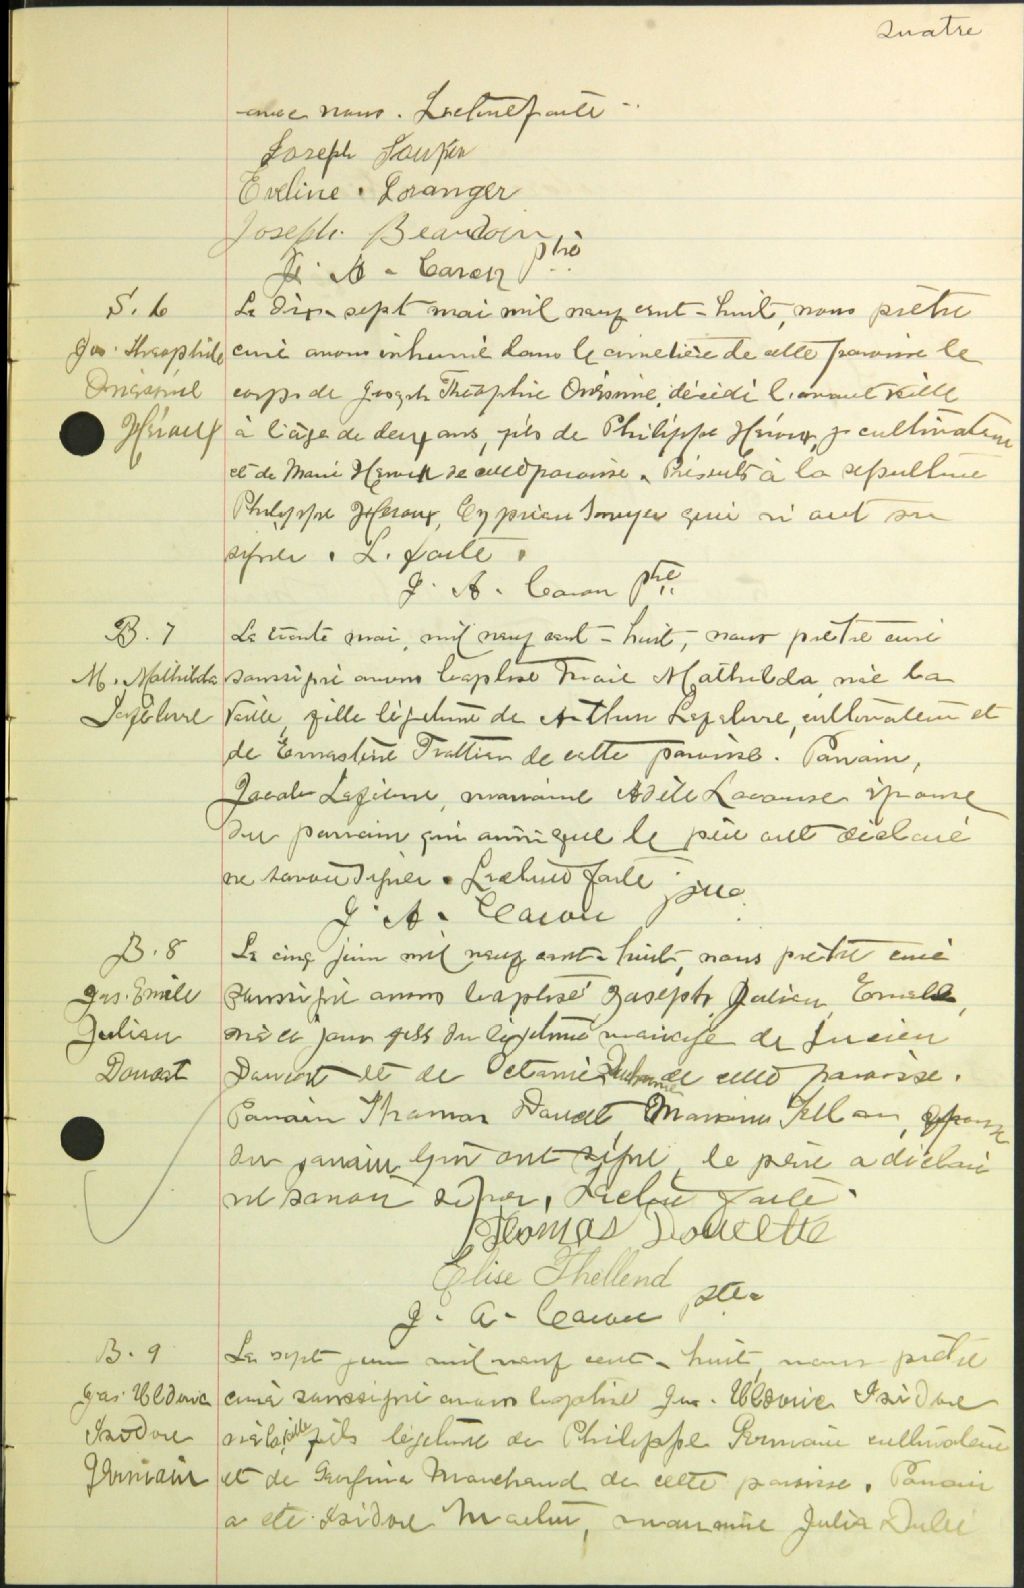 quatre
avec nous. Lecture faite.
Joseph
Eveline Loranger
Joseph Beaudoin
J. A. Caron ptre
S. 6
Jos. Théophile
Onésime
Héroux
Le dix-sept mai mil neuf cent-huit, nous prêtre
curé avons inhumé dans le cimetière de cette paroisse le
corps de Joseph Théophile Onésime, décédé l'avant veille
à l'âge de deux ans, fils de Philippe Héroux, cultivateur
et de Marie Héroux de cette paroisse. Présents à la sépulture
Philippe Héroux, Cyprien qui n'ont su
signer. L. faite.
J. A. Caron ptre
B. 7
M. Mathilda
Lefebvre
Le trente mai, mil neuf cent-huit, nous prêtre curé
soussigné avons baptisé Marie Mathilda née la
veille, fille légitime de Arthur Lefebvre, cultivateur et
de Ernestine Trottier de cette paroisse. Parrain,
Jacob Lefebvre, marraine Adèle Lacourse épouse
du parrain qui ainsi que le père ont déclaré
ne savoir signer. Lecture faite.
J. A. Caron ptre
B. 8
Jos. Emile
Julien
Doucet
Le cinq juin mil neuf cent-huit, nous prêtre curé
soussigné avons baptisé Joseph, Julien, Emile,
né ce jour fils du légitime mariage de Lucien
Doucet et de Octavie de cette paroisse.
Parrain Thomas Doucet, Marraine, épouse
du parrain qui ont signé, le père a déclaré
ne savoir signer, Lecture faite.
Thomas Doucette
Elise Thellend
J. A. Caron ptre
B. 9
Jos. Ulderic
Isidore
Germain
Le sept juin mil neuf cent-huit, nous prêtre
curé soussigné avons baptisé Jos. Ulderic Isidore
né la veille fils légitime de Philippe Germain cultivateur
et de Georgina Marchand de cette paroisse. Parrain
a été Isidore, marraine Julia Dubé